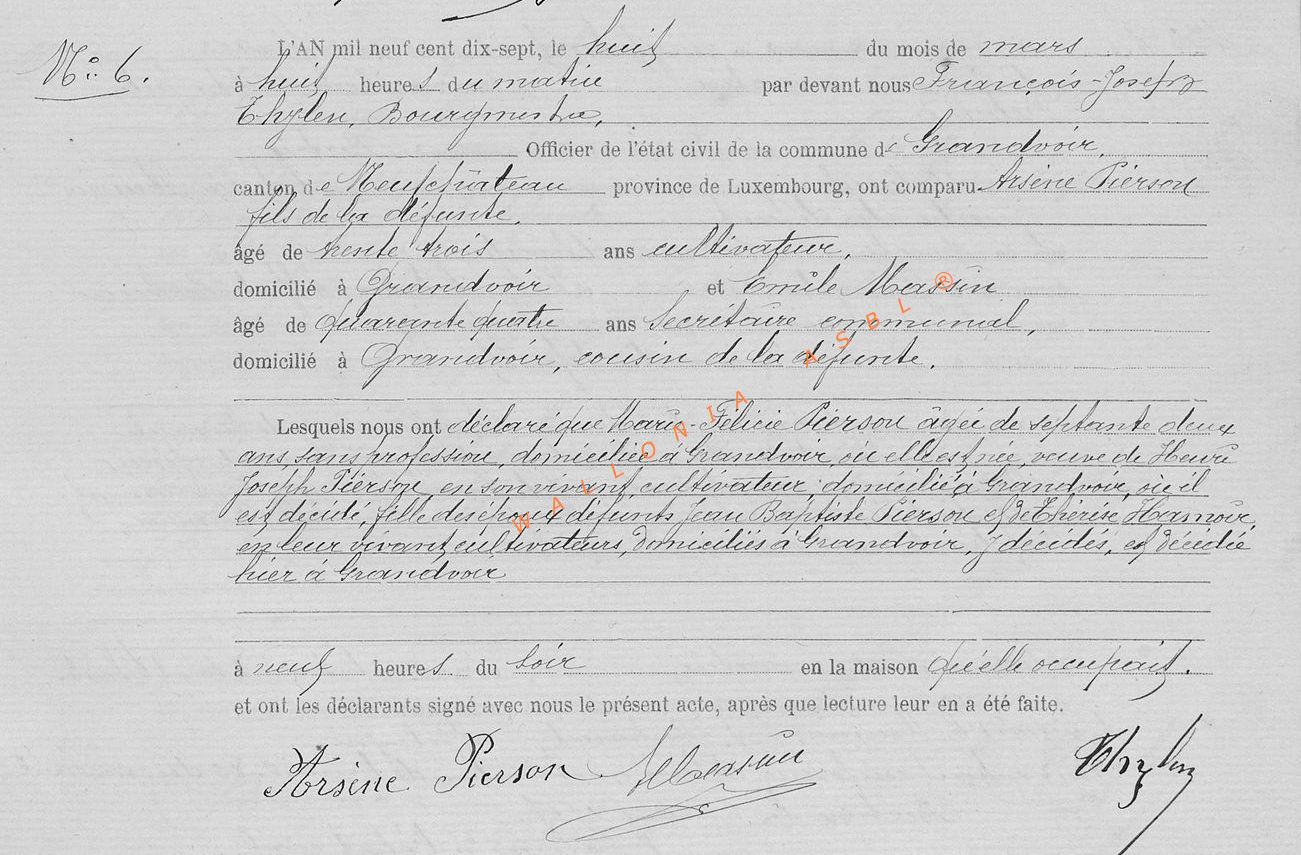 L'AN mil neuf cent dix-sept, le huit du mois de mars
N° 6.
à huit heures du matin par devant nous François-Joseph
Thylen, Bourgmestre,
Officier de l'état civil de la commune de Grandvoir,
canton de Neufchâteau province de Luxembourg, ont comparu Arsène Pierson
fils de la défunte,
âgé de trente trois ans cultivateur,
domicilié à Grandvoir et Emile Massin
âgé de quarante quatre ans Secrétaire communal,
domicilié à Grandvoir, cousin de la défunte.
Lesquels nous ont déclaré que Marie-Félicie Pierson âgée de septante deux
ans, sans profession, domiciliée à Grandvoir, où elle est née, veuve de Henri
Joseph Pierson, en son vivant cultivateur, domicilié à Grandvoir, où il
est décédé, fille des époux défunts Jean Baptiste Pierson et de Thérèse Hamoir,
en leur vivant cultivateurs, domiciliés à Grandvoir, y décédés, est décédée
hier à Grandvoir
à neuf heures du soir en la maison qu'elle occupait.
et ont les déclarants signé avec nous le présent acte, après que lecture leur en a été faite.
Arsène Pierson EMassin Thylen
WALLONIA ASBL ®